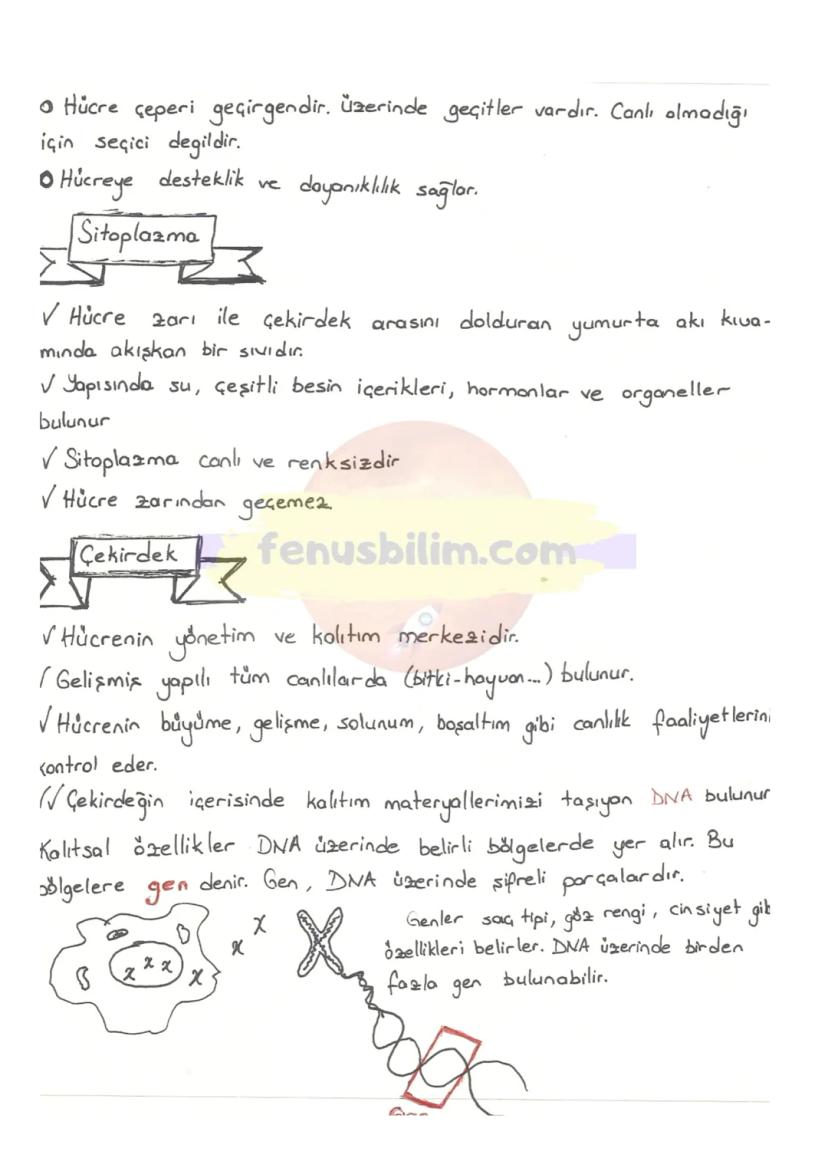 Hücre çeperi geçirgendir. Üzerinde geçitler vardır. Canlı olmadığı
için seçici degildir.
Hücreye desteklik ve dayanıklılık sağlar.
Sitoplazma
√ Hücre zarı ile çekirdek arasını dolduran yumurta akı kıva-
mında akışkan bir sıvıdır.
√ Yapısında su, çeşitli besin içerikleri, hormonlar ve organeller
bulunur
√ Sitoplazma canlı ve renksizdir
√ Hücre zarından geçemez.
Çekirdek
fenusbilim.com
√ Hücrenin yönetim ve kalıtım merkezidir.
Gelişmiş yapılı tüm canlılarda (bitki-hayvan...) bulunur.
√ Hücrenin büyüme, gelişme, solunum, boşaltım gibi canlılık faaliyetlerini
kontrol eder.
√ Çekirdeğin içerisinde kalıtım materyallerimizi taşıyan DNA bulunur
Kalıtsal özellikler DNA üzerinde belirli bölgelerde yer alır. Bu
bölgelere gen denir. Gen, DNA üzerinde şifreli parçalardır.
Genler saç tipi, göz rengi, cinsiyet gib
özellikleri belirler. DNA üzerinde birden
fazla gen bulunabilir.